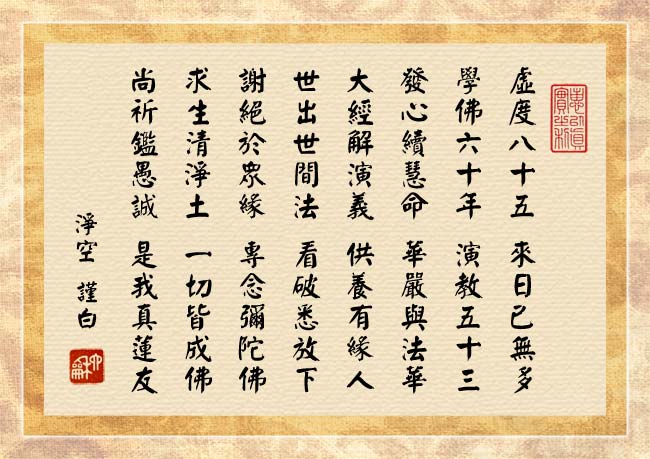 惠以真
實之利
虛度八十五 來日已無多
學佛六十年 演教五十三
發心續慧命 華嚴與法華
大經解演義 供養有緣人
世出世間法 看破悉放下
謝絕於眾緣 專念彌陀佛
求生清淨土 一切皆成佛
尚祈鑑愚誠 是我真蓮友
淨空 謹白